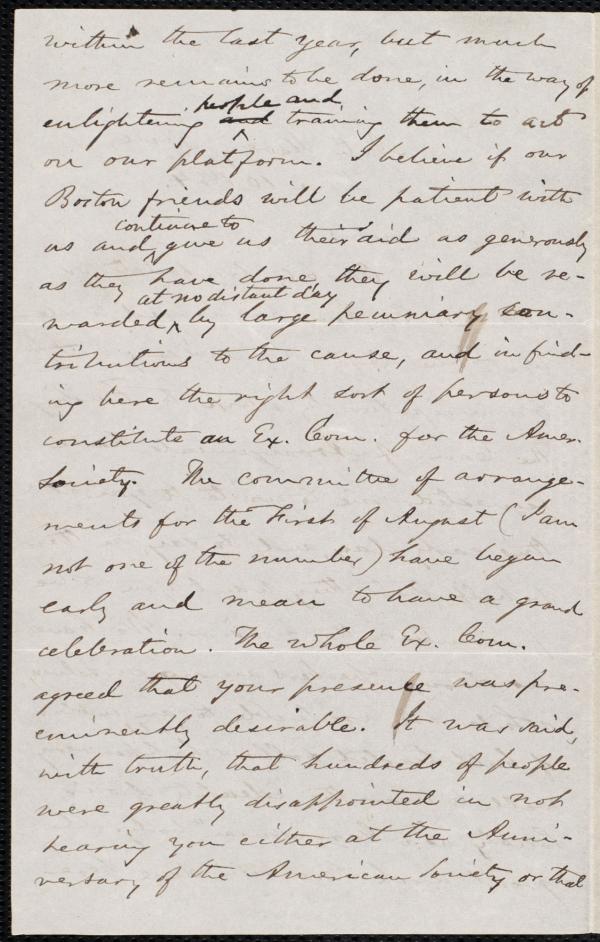 within the last year, but much
more remains to be done, in the way of
people and
enlightening and training them to act
on our platform. I believe if our
Boston friends will be patient with
continue to
us and give us their aid as generously
as they have done, they will be re-
at no distant day
warded, by large pecuniary con-
tributions to the cause, and in find-
ing here the right sort of persons to
constitute an Ex. Com. for the Amer.
Society. The committee of arrange-
ments for the First of August (I am
not one of the number) have began
early and mean to have a grand
celebration. The whole Ex. Com.
agreed that your presence was pre-
eminently desirable. It was said,
with truth, that hundreds of people
were greatly disappointed in not
hearing you either at the Anni-
versary of the American Society or that